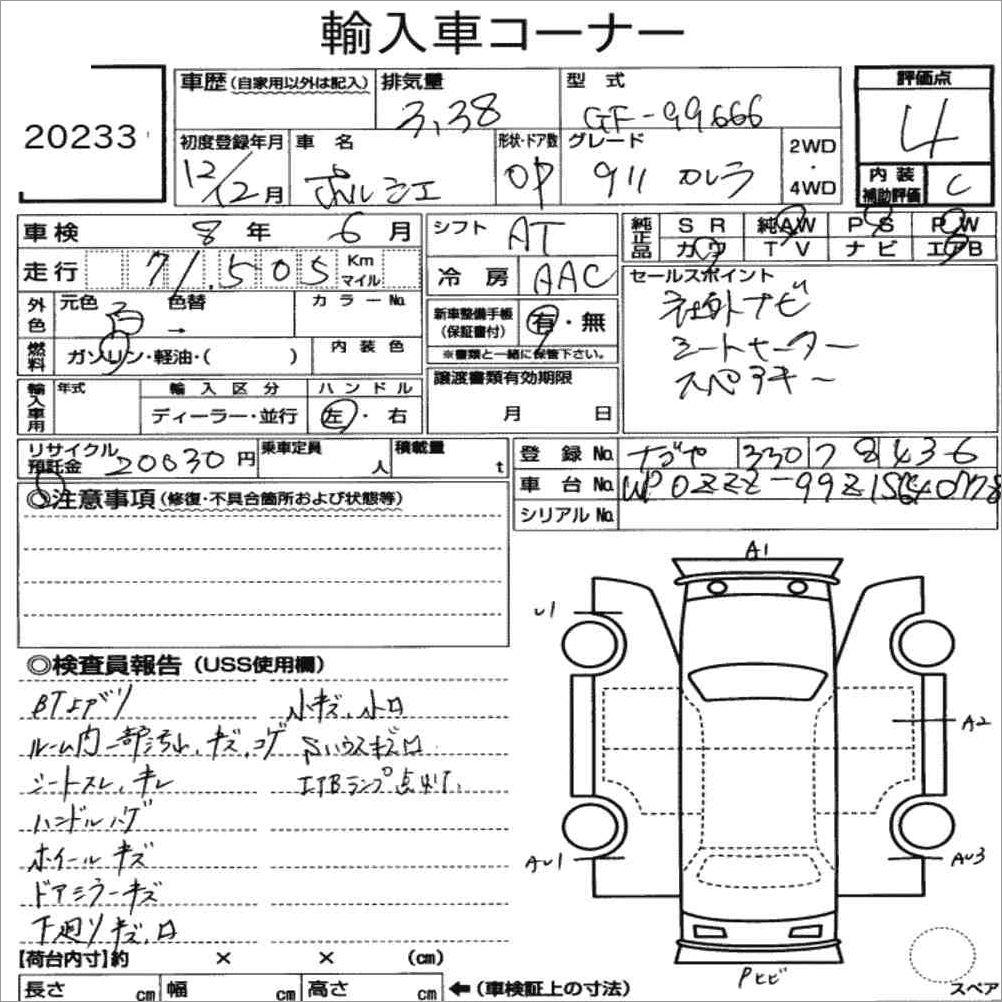 輸入車コーナー
20233
車歴 (自家用以外は記入) 排気量 型式 評価点
3,38 GF-99666 4
初度登録年月 車名 形状・ドア数 グレード 2WD・4WD
12/12月 ポルシェ OP 911 カレラ
内装補助評価 C
車検 8年 6月 シフト AT
走行 71.505 Km マイル 冷房 AAC
純正品 SR 純AW PS PW
カワ TV ナビ エアB
外色 元色 白 色替 → カラーNo.
新車整備手帳 (保証書付) 有・無
※書類と一緒に保管下さい。
燃料 ガソリン・軽油・( ) 内装色
セールスポイント
社外ナビ
シートヒーター
スペアキー
輸入車用 年式 輸入区分 ハンドル
ディーラー・並行 左・右
譲渡書類有効期限
月 日
リサイクル預託金 20030円 乗車定員 人 積載量 t
登録No. なごや 330 78436
車台No.
シリアルNo.
◎注意事項 (修復・不具合箇所および状態等)
◎検査員報告 (USS使用欄)
BTよデリ
ルーム内一部汚れ、キズ、コゲ
シートスレ、キレ
ハンドルハゲ
ホイールキズ
ドアミラーキズ
下廻りキズ、ロ
小キズ、小ロ
Sハウスキズロ
A1
U1
A2
AU1
AU3
Pヒビ
スペア
【荷台内寸】約 × × (cm)
長さ cm 幅 cm 高さ cm ←(車検証上の寸法)